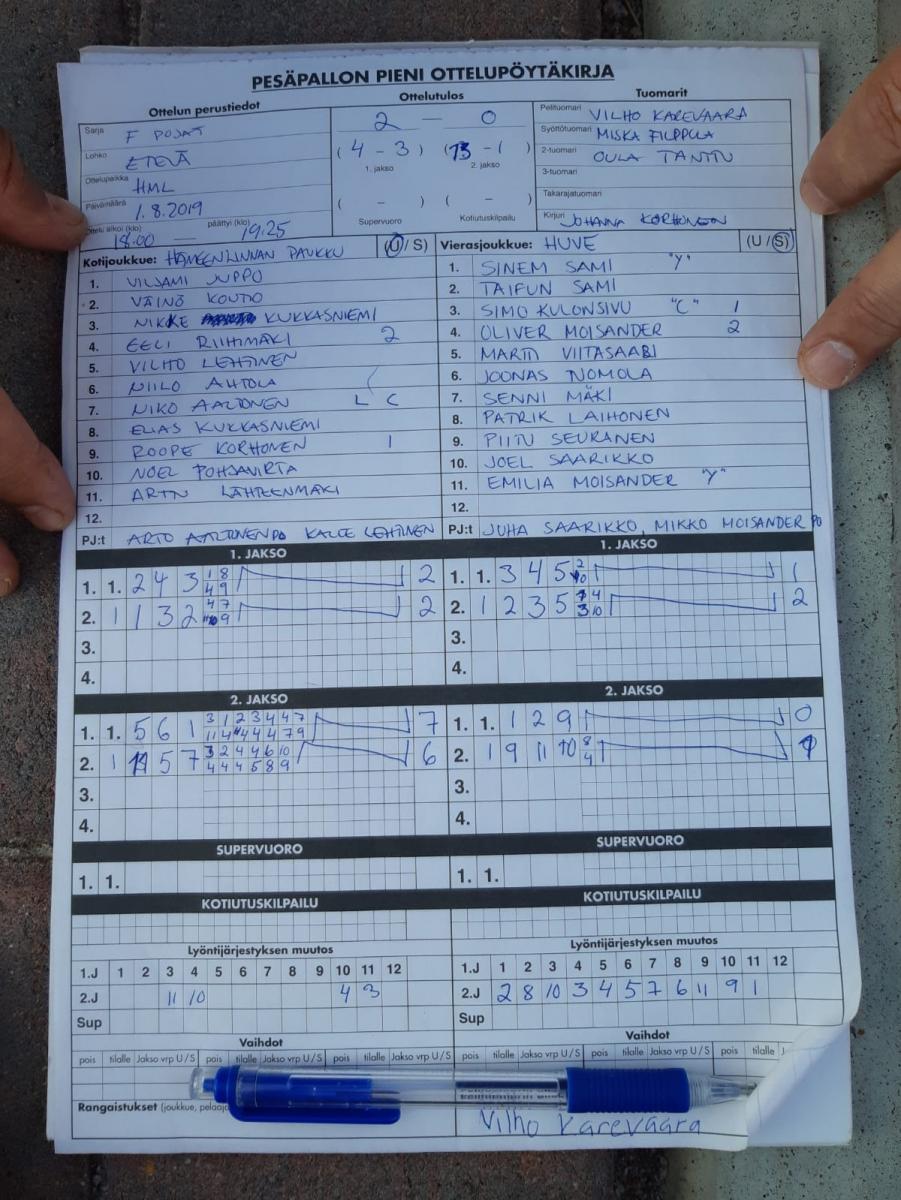 PESÄPALLON PIENI OTTELUPÖYTÄKIRJA
Ottelun perustiedot
Sarja F POJAT
Lohko ETEVÄ
Ottelupaikka HML
Päivämäärä 1.8.2019
Ottelu alkoi (klo) päättyi (klo)
18.00 — 19.25
Ottelutulos
2 — 0
( 4 - 3 ) ( 13 - 1 )
1. jakso 2. jakso
( - ) ( - )
Supervuoro Kotiutuskilpailu
Tuomarit
Pelituomari VILHO KAREVAARA
Syöttötuomari MISKA FILPPULA
2-tuomari OULA TANTTU
3-tuomari
Takarajatuomari
Kirjuri JOHANNA KORHONEN
Kotijoukkue: HÄMEENLINNAN PAUKKU (U / S)
1. VILJAMI JUPPO
2. VÄINÖ KOUTIO
3. NIKKE KUKKASNIEMI
4. EELI RIIHIMÄKI 2
5. VILHO LEHTINEN
6. NIILO AHTOLA
7. NIKO AALTONEN L C
8. ELIAS KUKKASNIEMI
9. ROOPE KORHONEN 1
10. NOEL POHJAVIRTA
11. ARTTU LÄHTEENMÄKI
12.
PJ:t ARTO AALTONEN PO KALLE LEHTINEN
Vierasjoukkue: HUVE (U / S)
1. SINEM SAMI "Y"
2. TAIFUN SAMI
3. SIMO KULONSIVU "C" 1
4. OLIVER MOISANDER 2
5. MARTTI VIITASAARI
6. JOONAS NOMOLA
7. SENNI MÄKI
8. PATRIK LAIHONEN
9. PIITU SEURANEN
10. JOEL SAARIKKO
11. EMILIA MOISANDER "Y"
12.
PJ:t JUHA SAARIKKO, MIKKO MOISANDER PO
1. JAKSO
1. 1. 2 4 3 1 8 2
4 9
2. 1 1 3 2 4 7 2
10 9
3.
4.
1. JAKSO
1. 1. 3 4 5 2 1
10
2. 1 2 3 5 4 2
3 10
3.
4.
2. JAKSO
1. 1. 5 6 1 3 1 2 3 4 4 7 7
11 4 4 4 4 7 9
2. 1 11 5 7 3 2 4 4 6 10 6
4 4 4 5 8 9
3.
4.
2. JAKSO
1. 1. 1 2 9 0
2. 1 9 11 10 8 1
4
3.
4.
SUPERVUORO
1. 1.
SUPERVUORO
1. 1.
KOTIUTUSKILPAILU
KOTIUTUSKILPAILU
Lyöntijärjestyksen muutos
1.J 1 2 3 4 5 6 7 8 9 10 11 12
2.J 11 10 4 3
Sup
Lyöntijärjestyksen muutos
1.J 1 2 3 4 5 6 7 8 9 10 11 12
2.J 2 8 10 3 4 5 7 6 11 9 1
Sup
Vaihdot
pois tilalle Jakso vrp U / S pois tilalle Jakso vrp U / S pois tilalle Jakso vrp U / S
Vaihdot
pois tilalle Jakso vrp U / S pois tilalle Jakso vrp U / S pois tilalle
Rangaistukset (joukkue, pelaaja
Vilho Karevaara